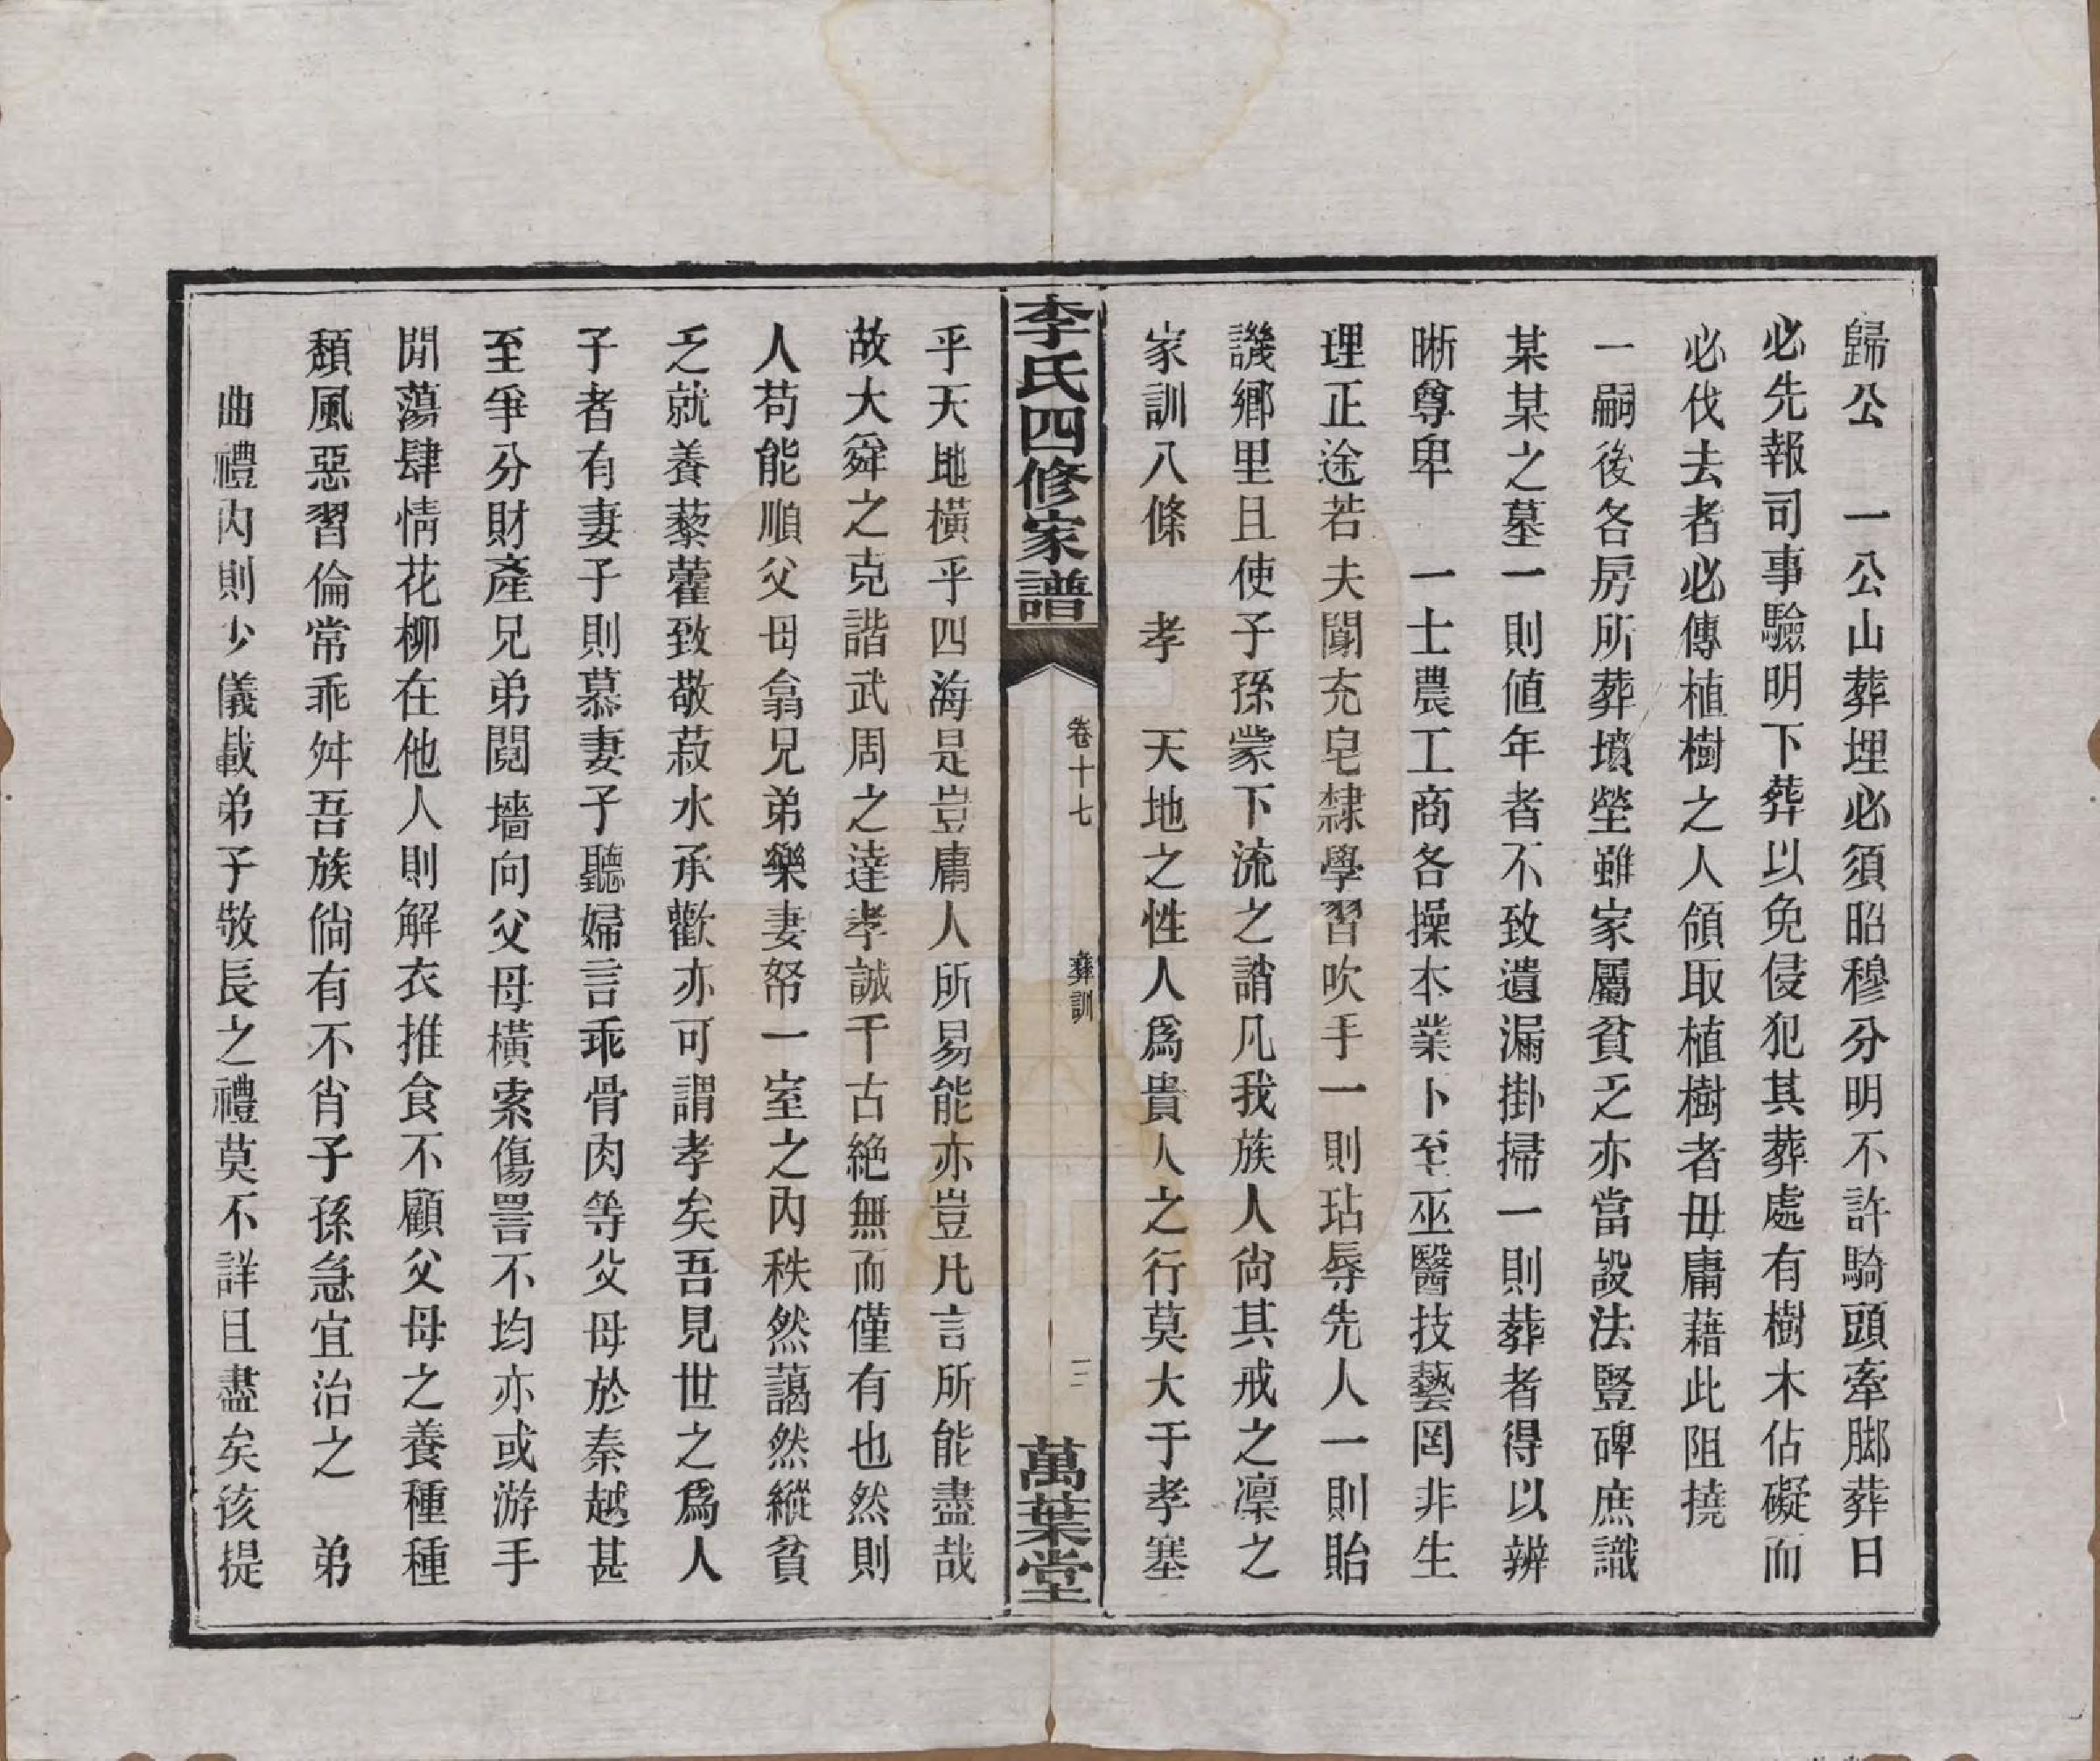 歸公　一公山葬埋必須昭穆分明不許騎頭牽脚葬日
必先報司事驗明下葬以免侵犯其葬處有樹木佔礙而
必伐去者必傳植樹之人領取植樹者毋庸藉此阻撓
一嗣後各房所葬墳塋雖家屬貧乏亦當設法豎碑庶識
某某之墓一則值年者不致遺漏掛掃一則葬者得以辨
晰尊卑　一士農工商各操本業卜至巫醫技藝罔非生
理正途若夫闒充皂隸學習吹手一則玷辱先人一則貽
譏鄉里且使子孫蒙下流之誚凡我族人尙其戒之凜之
家訓八條　孝　天地之性人爲貴人之行莫大于孝塞
李氏四修家譜　卷十七　彝訓　二　萬葉堂
乎天地橫乎四海是豈庸人所易能亦豈凡言所能盡哉
故大舜之克諧武周之達孝誠千古絶無而僅有也然則
人苟能順父母翕兄弟樂妻帑一室之內秩然藹然縱貧
乏就養藜藿致敬菽水承歡亦可謂孝矣吾見世之爲人
子者有妻子則慕妻子聽婦言乖骨肉等父母於秦越甚
至爭分財產兄弟鬩墻向父母橫索傷詈不均亦或游手
閒蕩肆情花柳在他人則解衣推食不顧父母之養種種
頹風惡習倫常乖舛吾族倘有不肖子孫急宜治之　弟
曲禮內則少儀載弟子敬長之禮莫不詳且盡矣孩提